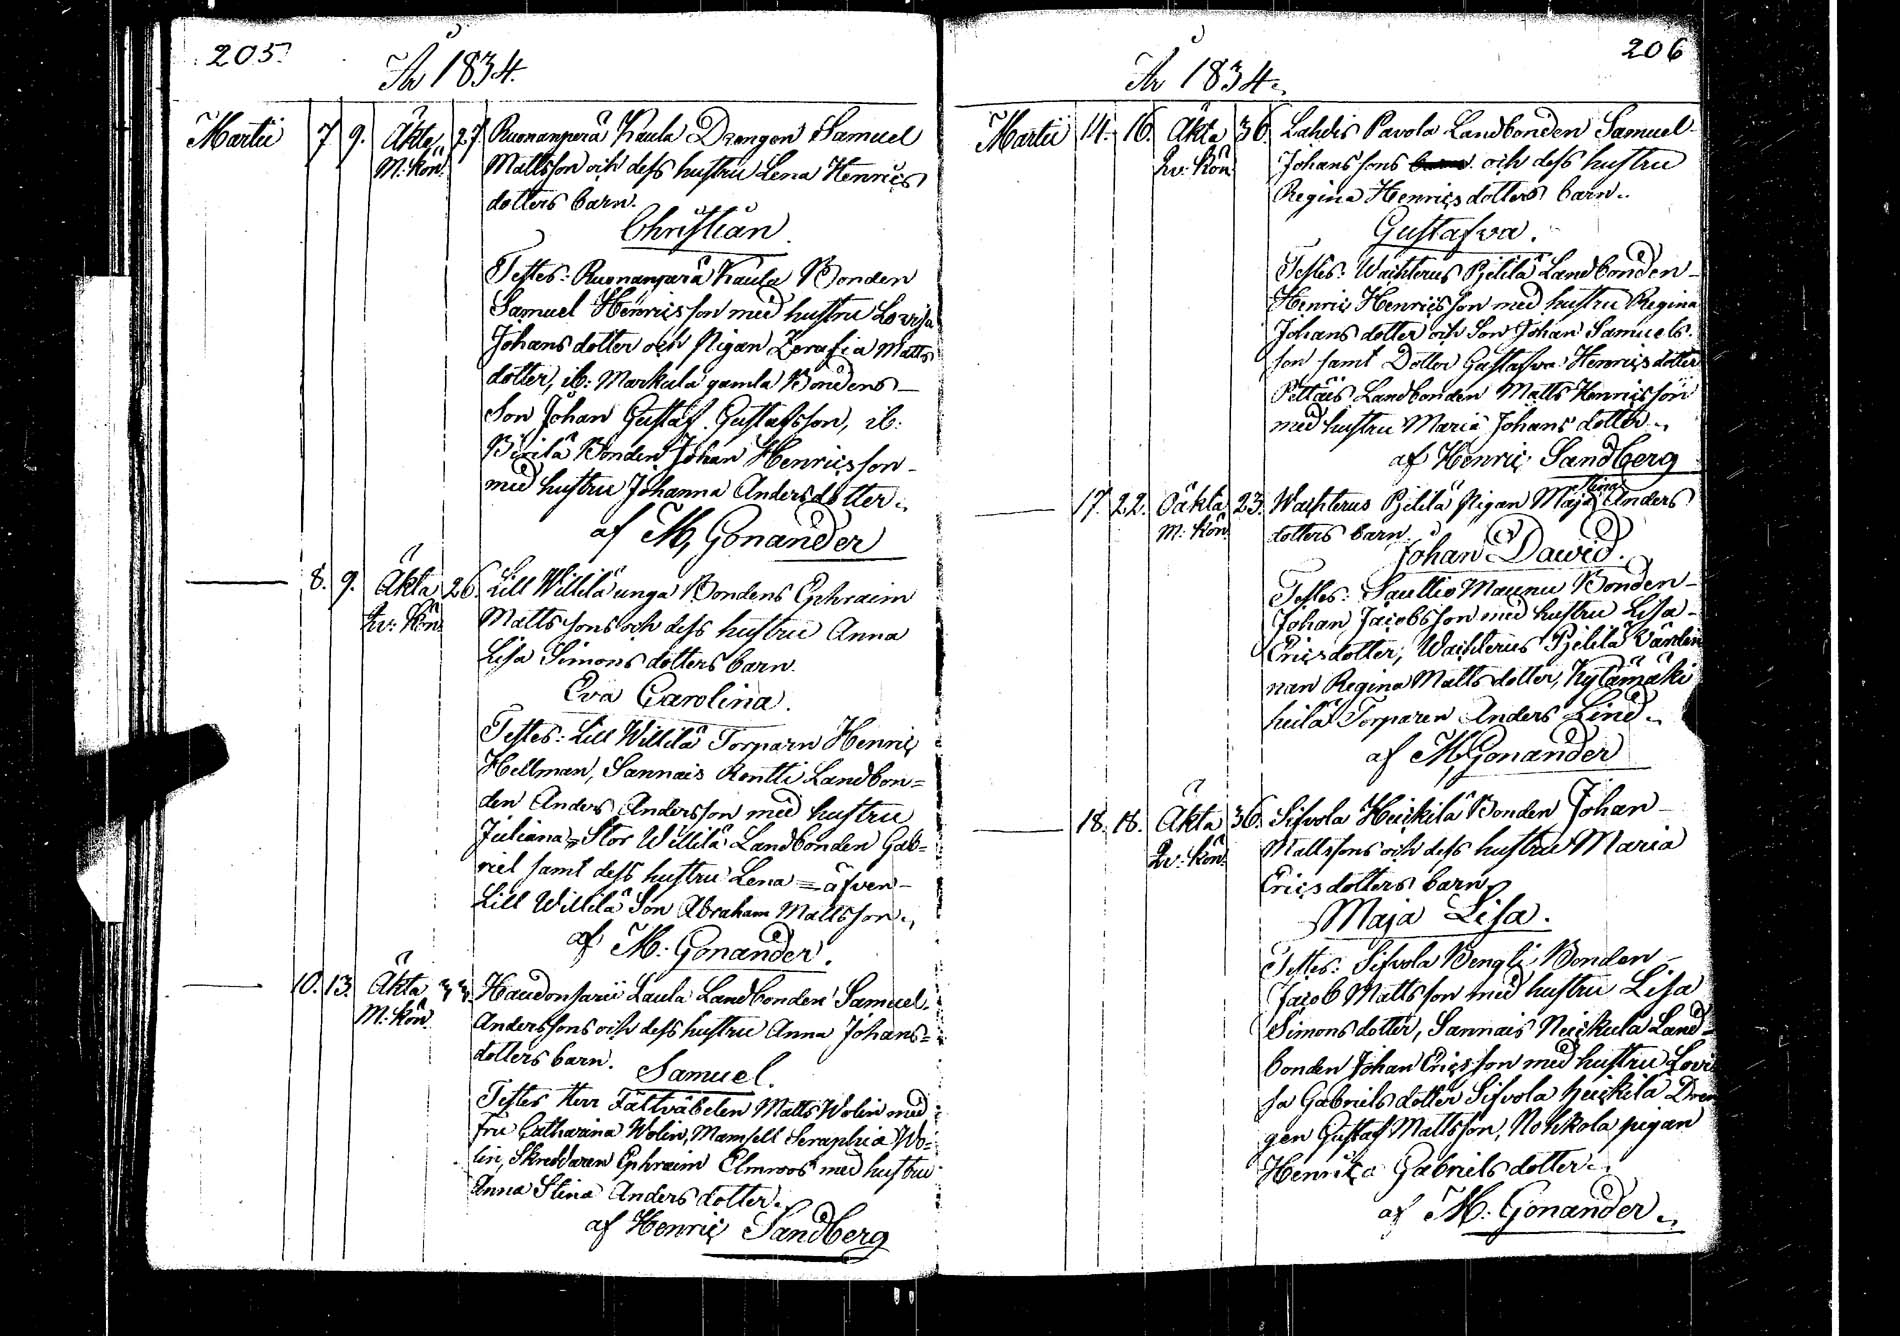 205.
År 1834.
Martii 7 9. Äkta 27. Ruonanperä Kaula Drengen Samuel
M: Kön. Mattsson och dess hustru Lena Henrics
dotters barn.
Christian.
Testes: Ruonanperä Kaula Bonden
Samuel Henricsson med hustru Lovisa
Johans dotter och Pigan Zerafia Matts
dotter, ib: Markula gamla Bondens
Son Johan Gustaf Gustafsson, ib:
Bonden Johan Henricsson
med hustru Johanna Andersdotter.
af M, Gonander
8. 9. Äkta 26. Lill Willilä unga Bondens Ephraim
Qv: Kön. Mattssons och dess hustru Anna
Lisa Simons dotters barn.
Eva Carolina.
Testes: Lill Willilä Torparn Henric
Hellman, Sannais Rentti Landbon=
den Anders Andersson med hustru
Juliana = Stor Willilä Landbonden Gab=
riel samt dess hustru Lena = äfven
Lill Willilä Son Abraham Mattsson.,
af M: Gonander.
10. 13. Äkta 33. Haudonsarii Laula Landbonden Samuel
M: Kön. Anderssons och dess hustru Anna Johans=
dotters barn.
Samuel.
Testes Herr Fältväbelen Matts Wolin med
fru Catharina Wolin, Mamsell Seraphia Wo=
lin, Skreddaren Ephraim Elmroos med hustru
Anna Stina Anders dotter.
af Henric Sandberg
206
År 1834.
Martii 14. 16. Äkta 36. Lahdis Pavola Landbonden Samuel
Qv: Kön. Johanssons och dess hustru
Regina Henricsdotters barn.
Gustafva.
Testes: Wachterus Pjelilä Landbonden
Henric Henricsson med hustru Regina
Johans dotter och Son Johan Samuels
son samt Dotter Gustafva Henricsdotter
Pettäis Landbonden Matts Henricsson
med hustru Maria Johans dotter.
af Henric Sandberg
17. 22. Oäkta 23. Wachterus Pjelilä Pigan Maja Stina Anders
M: Kön. dotters barn.
Johan Dawid.
Testes: Saullio Maunu Bonden
Johan Jacobsson med hustru Lisa
Ericsdotter, Wachterus Pjelilä Värdin
nan Regina Matts dotter, Kylämäki
heilä Torparen Anders Lind.
af M, Gonander
18. 18. Äkta 36. Sifvola Heickilä Bonden Johan
Qv: Kön. Mattssons och dess hustru Maria
Ericsdotters barn
Maja Lisa.
Testes: Sifvola Bengli Bonden
Jacob Mattsson med hustru Lisa
Simons dotter, Sannais Nickula Land=
bonden Johan Ericsson med hustru Lovi
sa Gabriels dotter Sifvola Heickilä Dren
gen Gustaf Mattsson, Nohkola pigan
Henrica Gabriels dotter.
af M: Gonander.